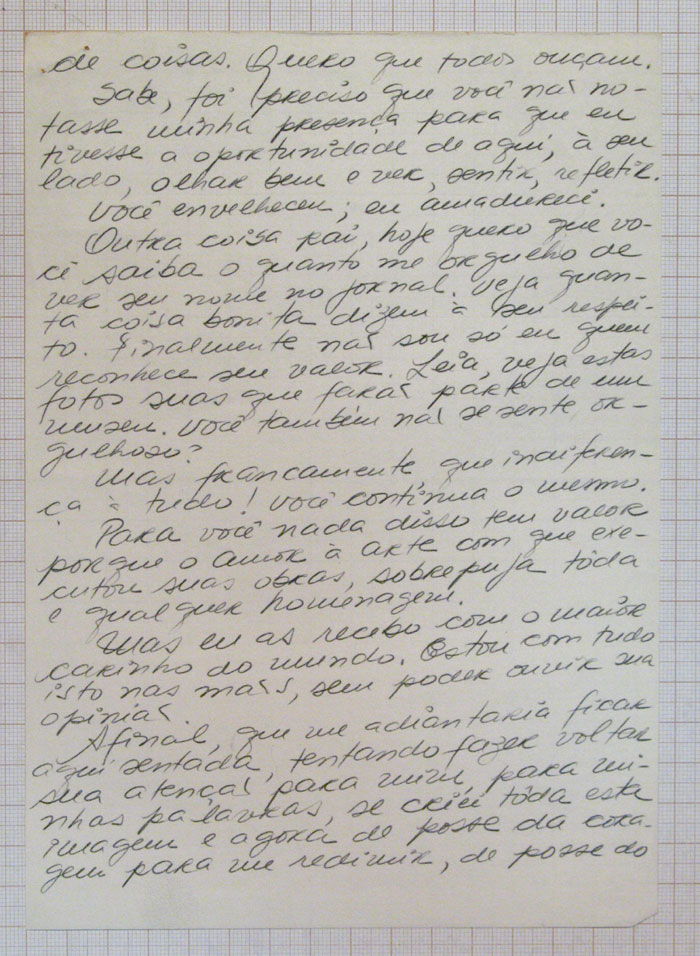 de coisas. Quero que todos ouçam.
Sabe, foi preciso que você não no-
tasse minha presença para que eu
tivesse a oportunidade de aqui, à seu
lado, olhar bem e ver, sentir, refletir.
Você envelheceu; eu amadureci.
Outra coisa pai, hoje quero que vo-
cê saiba o quanto me orgulho de
ver seu nome no jornal. Veja quan-
ta coisa bonita dizem à seu respei-
to. Finalmente não sou só eu quem
reconhece seu valor. Leia, veja estas
fotos suas que farão parte de um
museu. Você também não se sente or-
gulhoso?
Mas francamente que indiferen-
ça à tudo! Você continua o mesmo.
Para você nada disso tem valor
porque o amor à arte com que exe-
cutou suas obras, sobrepuja tôda
e qualquer homenagem.
Mas eu as recebo com o maior
carinho do mundo. Estou com tudo
isto nas mãos, sem poder ouvir sua
opinião.
Afinal, que me adiantaria ficar
aqui sentada, tentando fazer voltar
sua atenção para mim, para mi-
nhas palavras, se criei tôda esta
imagem e agora de posse da cora-
gem para me redimir, de posse do